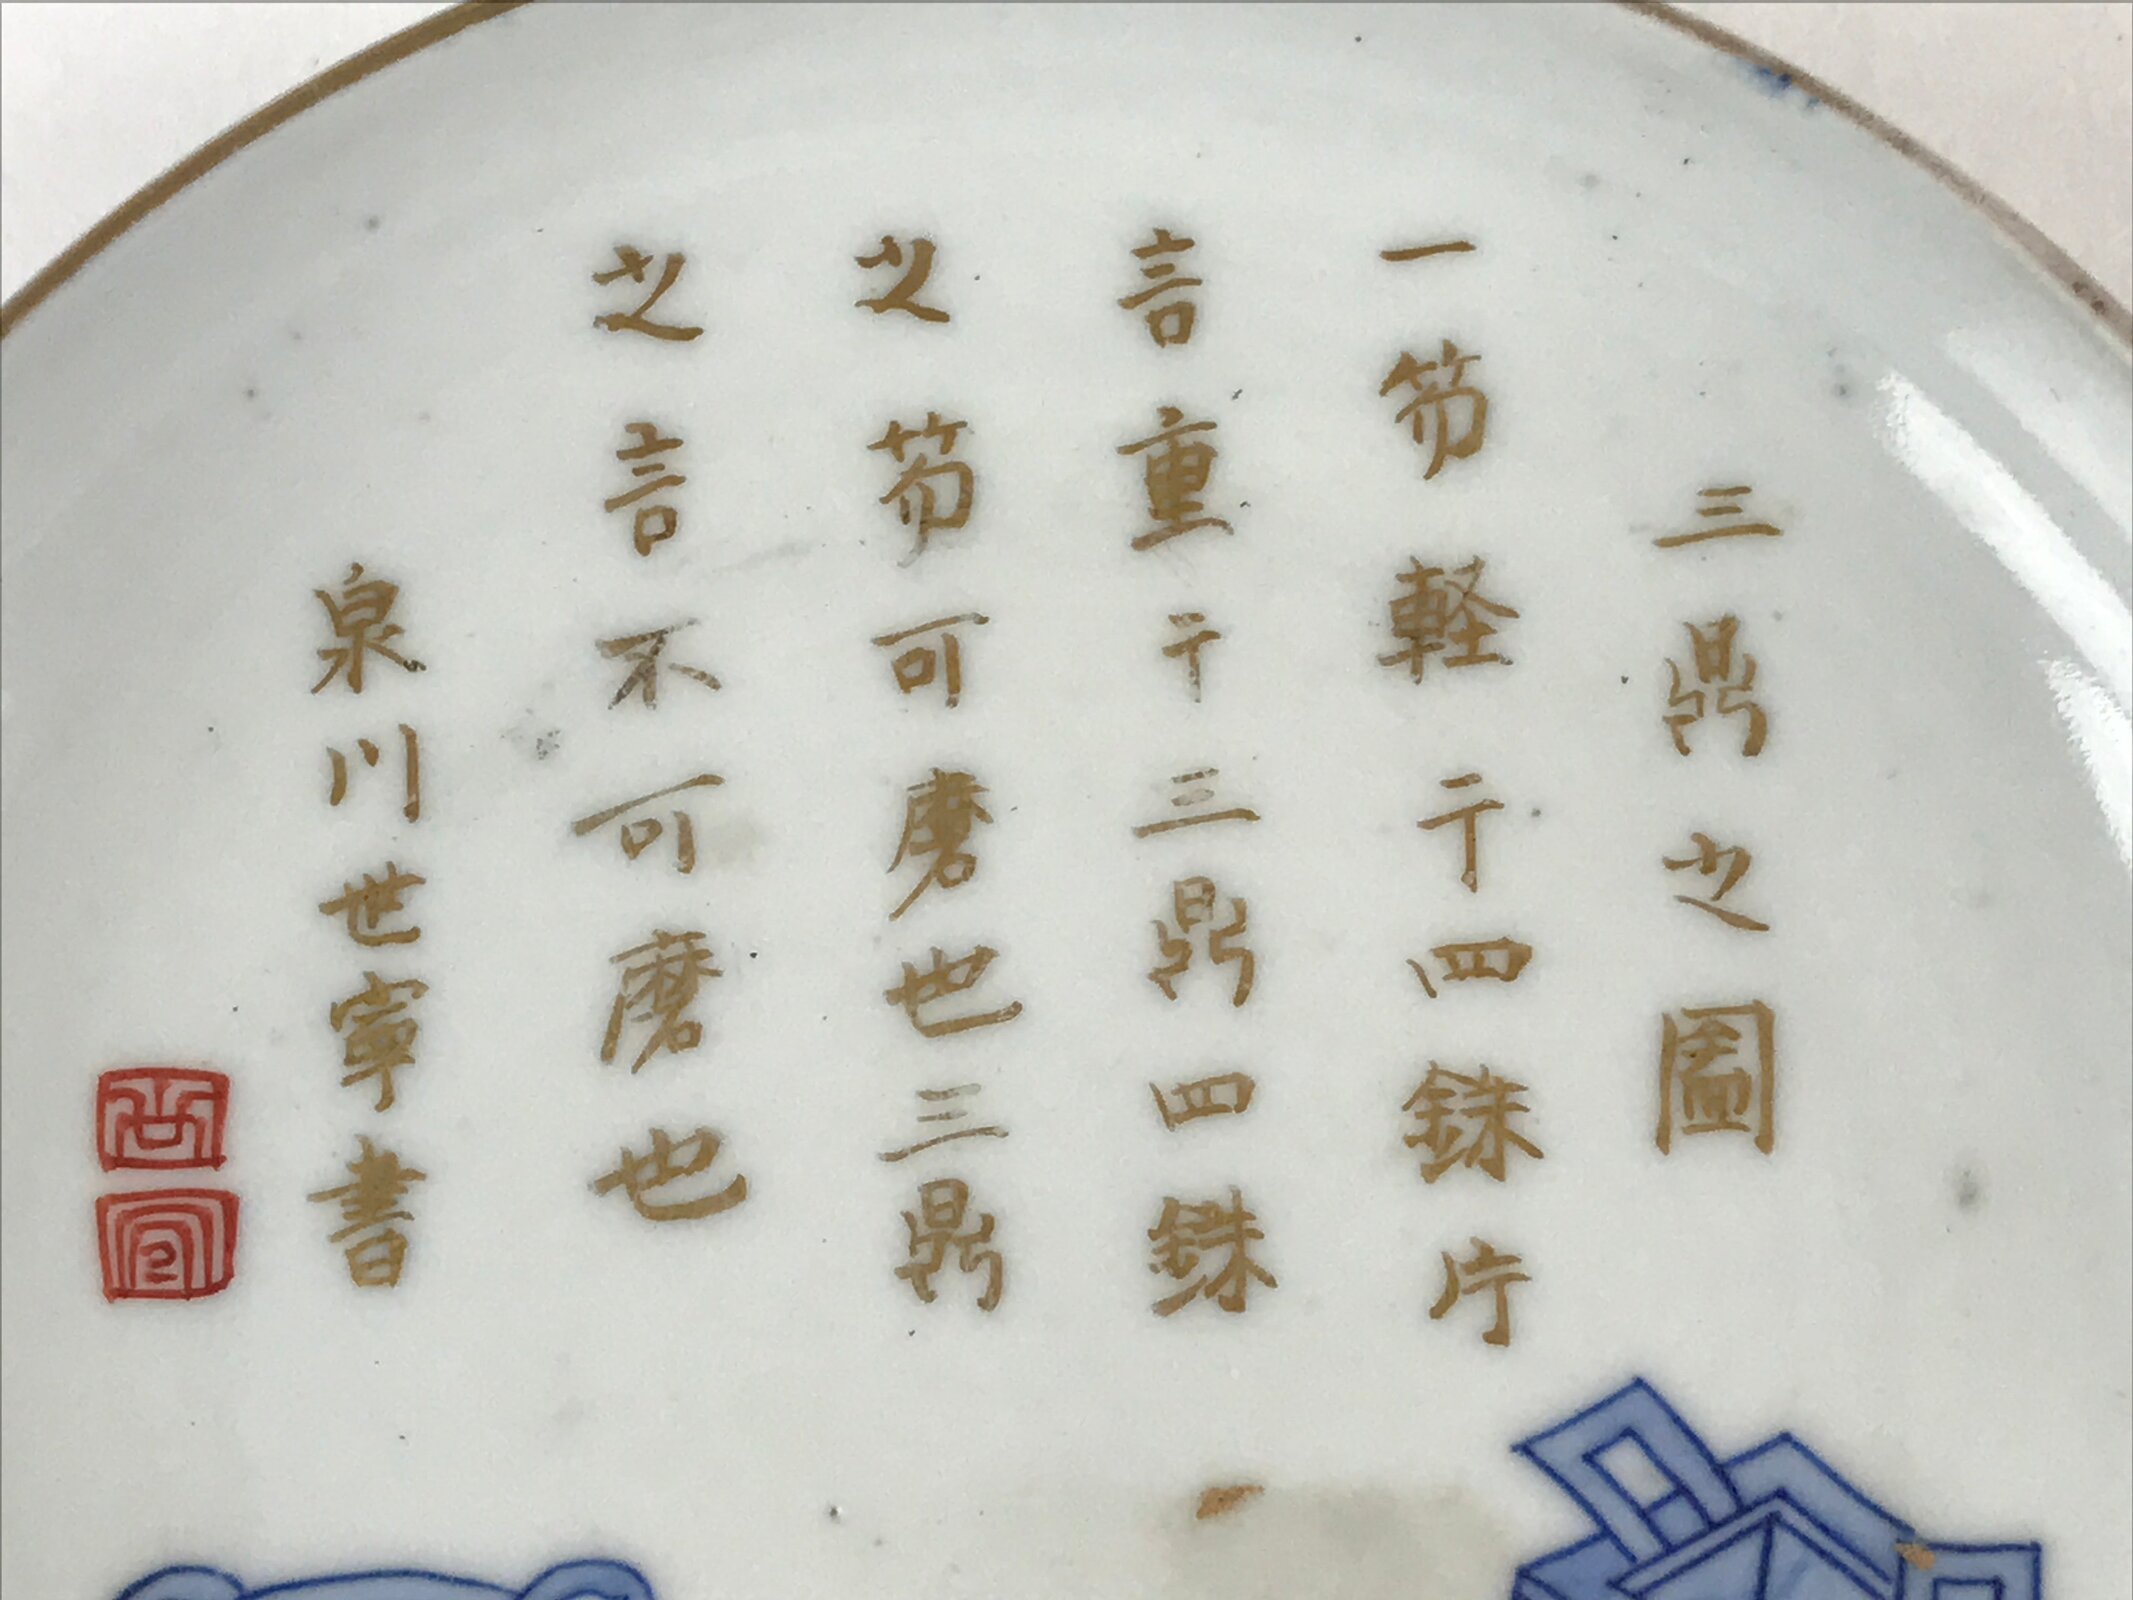 三鼎之圖
一笏軽于四銖片
言重于三鼎四銖
之笏可磨也三鼎
之言不可磨也
泉川世寧書